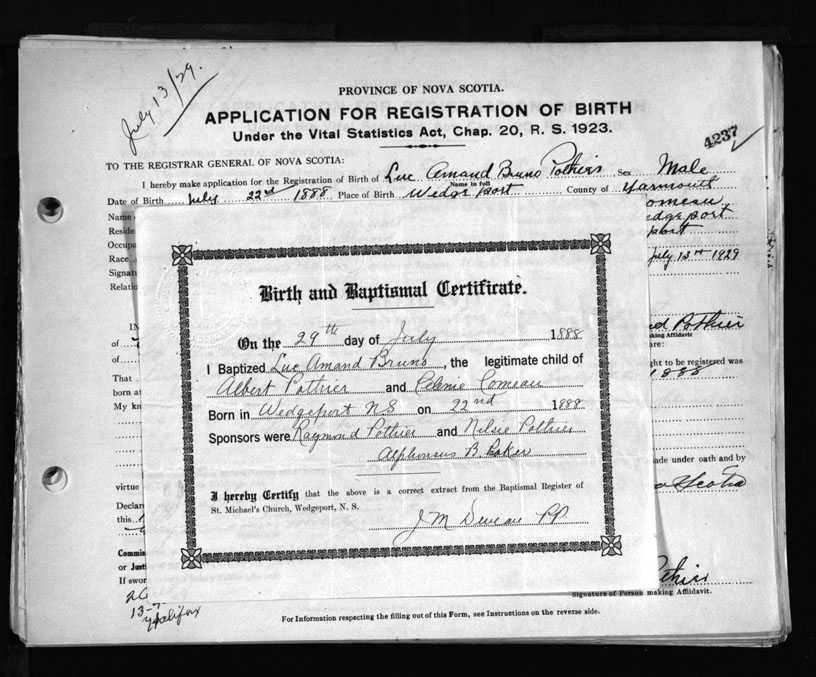 July 13/29.
PROVINCE OF NOVA SCOTIA.
APPLICATION FOR REGISTRATION OF BIRTH
Under the Vital Statistics Act, Chap. 20, R. S. 1923.
4237
TO THE REGISTRAR GENERAL OF NOVA SCOTIA:
I hereby make application for the Registration of Birth of Luc Amand Bruno Pothier Sex Male
Name in full
Date of Birth July 22nd 1888 Place of Birth Wedgeport County of Yarmouth
Name omeau
Reside edgeport
Occupa port
Race
Signatu July 13th 1929
Relatio
Birth and Baptismal Certificate.
On the 29th day of July 1888
I Baptized Luc Amand Bruno, the legitimate child of
Albert Pothier and Comeau
Born in Wedgeport NS on 22nd 1888
Sponsors were Raymond Pothier and Pothier
Alphonsus B. Baker
I hereby Certify that the above is a correct extract from the Baptismal Register of
St. Michael's Church, Wedgeport, N. S.
J M Deveau PP
IN
of
nd Pothier
making Affidavit
are:
of
ght to be registered was
That 1888
born at
My kn
ade under oath and by
virtue a Scotia
Declar
this
Commis
or Justi
If swor
othier
Signature of Person making Affidavit.
13-7-
Halifax
For Information respecting the filling out of this Form, see Instructions on the reverse side.